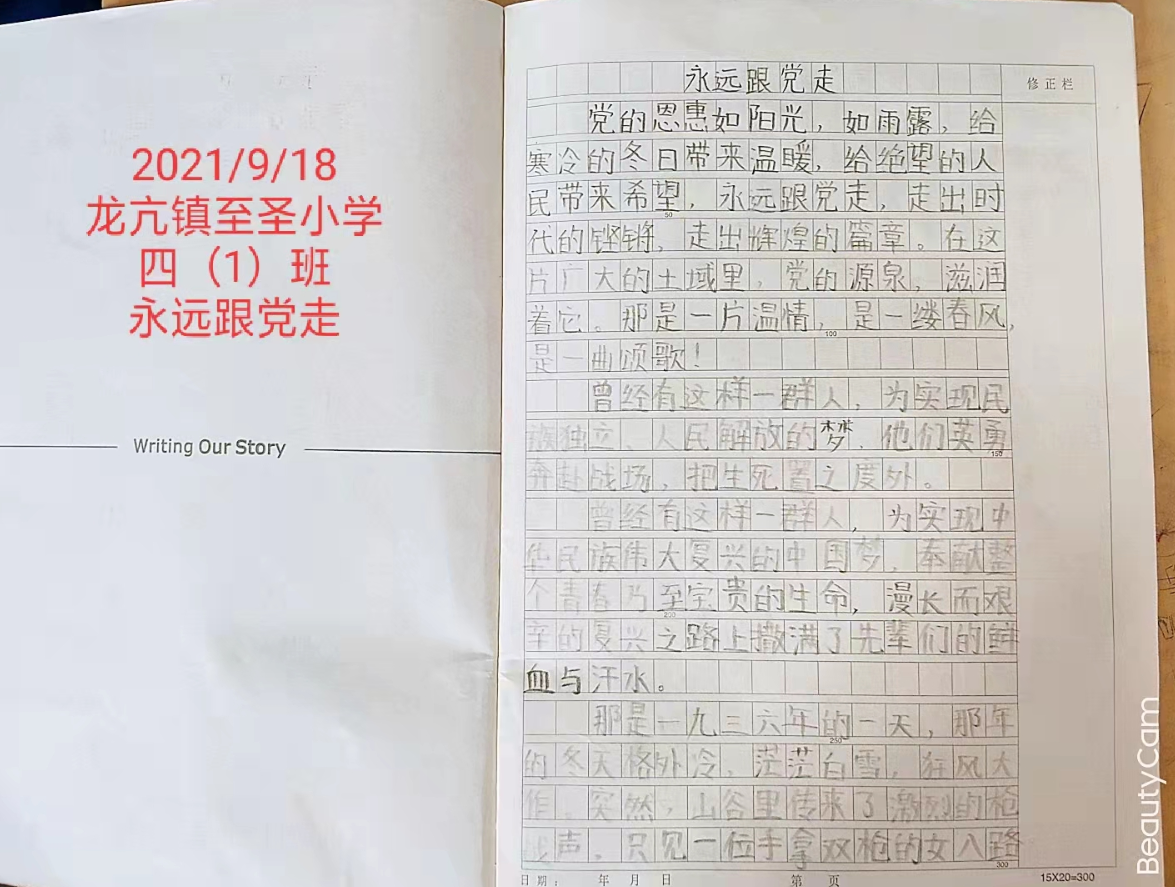 2021/9/18
龙亢镇至圣小学
四（1）班
永远跟党走
Writing Our Story
永远跟党走
修正栏
党的恩惠如阳光，如雨露，给
寒冷的冬日带来温暖，给绝望的人
民带来希望，永远跟党走，走出时
代的铿锵，走出辉煌的篇章。在这
片广大的土域里，党的源泉，滋润
着它。那是一片温情，是一缕春风，
是一曲颂歌！
曾经有这样一群人，为实现民
族独立、人民解放的梦，他们英勇
奔赴战场，把生死置之度外。
曾经有这样一群人，为实现中
华民族伟大复兴的中国梦，奉献整
个青春乃至宝贵的生命，漫长而艰
辛的复兴之路上撒满了先辈们的鲜
血与汗水。
那是一九三六年的一天，那年
的冬天格外冷，茫茫白雪，狂风大
作。突然，山谷里传来了激烈的枪
声，只见一位手拿双枪的女八路
50
100
150
200
250
300
日期： 年 月 日 第 页
15X20=300
BeautyCam